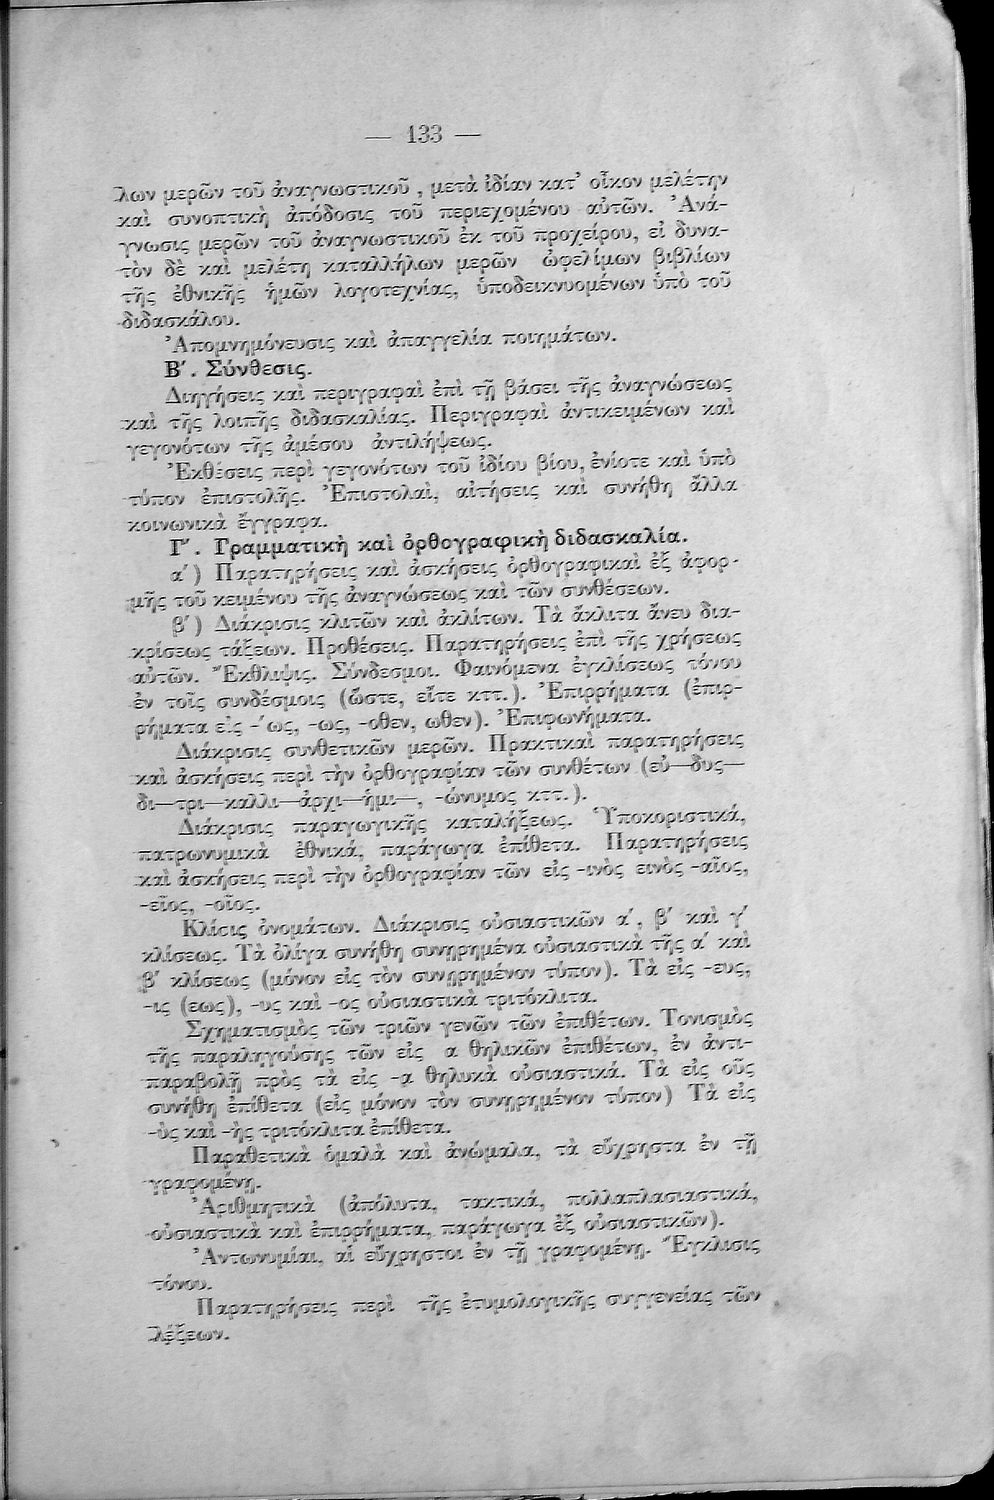 — 133 —
λων μερῶν τοῦ ἀναγνωστικοῦ , μετὰ ἰδίαν κατ' οἶκον μελέτην
καὶ συνοπτικὴ ἀπόδοσις τοῦ περιεχομένου αὐτῶν. Ἀνά-
γνωσις μερῶν τοῦ ἀναγνωστικοῦ ἐκ τοῦ προχείρου, εἰ δυνα-
τὸν δὲ καὶ μελέτη καταλλήλων μερῶν ὠφελίμων βιβλίων
τῆς ἐθνικῆς ἡμῶν λογοτεχνίας, ὑποδεικνυομένων ὑπὸ τοῦ
διδασκάλου.
Ἀπομνημόνευσις καὶ ἀπαγγελία ποιημάτων.
Β'. Σύνθεσις.
Διηγήσεις καὶ περιγραφαὶ ἐπὶ τῇ βάσει τῆς ἀναγνώσεως
καὶ τῆς λοιπῆς διδασκαλίας. Περιγραφαὶ ἀντικειμένων καὶ
γεγονότων τῆς ἀμέσου ἀντιλήψεως.
Ἐκθέσεις περὶ γεγονότων τοῦ ἰδίου βίου, ἐνίοτε καὶ ὑπὸ
τύπον ἐπιστολῆς. Ἐπιστολαὶ, αἰτήσεις καὶ συνήθη ἄλλα
κοινωνικὰ ἔγγραφα.
Γ'. Γραμματικὴ καὶ ὀρθογραφικὴ διδασκαλία.
α') Παρατηρήσεις καὶ ἀσκήσεις ὀρθογραφικαὶ ἐξ ἀφορ-
μῆς τοῦ κειμένου τῆς ἀναγνώσεως καὶ τῶν συνθέσεων.
β') Διάκρισις κλιτῶν καὶ ἀκλίτων. Τὰ ἄκλιτα ἄνευ δια-
κρίσεως τάξεων. Προθέσεις. Παρατηρήσεις ἐπὶ τῆς χρήσεως
αὐτῶν. Ἔκθλιψις. Σύνδεσμοι. Φαινόμενα ἐγκλίσεως τόνου
ἐν τοῖς συνδέσμοις (ὥστε, εἴτε κττ.). Ἐπιρρήματα (ἐπιρ-
ρήματα εἰς -'ως, -ως, -οθεν, ωθεν). Ἐπιφωνήματα.
Διάκρισις συνθετικῶν μερῶν. Πρακτικαὶ παρατηρήσεις
καὶ ἀσκήσεις περὶ τὴν ὀρθογραφίαν τῶν συνθέτων (εὐ—δυς—
δι—τρι—καλλι—ἀρχι—ἡμι—, -ώνυμος κττ.).
Διάκρισις παραγωγικῆς καταλήξεως. Ὑποκοριστικά,
πατρωνυμικὰ ἐθνικά, παράγωγα ἐπίθετα. Παρατηρήσεις
καὶ ἀσκήσεις περὶ τὴν ὀρθογραφίαν τῶν εἰς -ινὸς εινὸς -αῖος,
-εῖος, -οῖος.
Κλίσις ὀνομάτων. Διάκρισις οὐσιαστικῶν α', β' καὶ γ'
κλίσεως. Τὰ ὀλίγα συνήθη συνῃρημένα οὐσιαστικὰ τῆς α' καὶ
β' κλίσεως (μόνον εἰς τὸν συνῃρημένον τύπον). Τὰ εἰς -ευς,
-ις (εως), -υς καὶ -ος οὐσιαστικὰ τριτόκλιτα.
Σχηματισμὸς τῶν τριῶν γενῶν τῶν ἐπιθέτων. Τονισμὸς
τῆς παραληγούσης τῶν εἰς α θηλικῶν ἐπιθέτων, ἐν ἀντι-
παραβολῇ πρὸς τὰ εἰς -α θηλυκὰ οὐσιαστικά. Τὰ εἰς οῦς
συνήθη ἐπίθετα (εἰς μόνον τὸν συνῃρημένον τύπον) Τὰ εἰς
-ὺς καὶ -ὴς τριτόκλιτα ἐπίθετα.
Παραθετικὰ ὁμαλὰ καὶ ἀνώμαλα, τὰ εὔχρηστα ἐν τῇ
γραφομένῃ.
Ἀριθμητικὰ (ἀπόλυτα, τακτικά, πολλαπλασιαστικά,
οὐσιαστικὰ καὶ ἐπιρρήματα, παράγωγα ἐξ οὐσιαστικῶν).
Ἀντωνυμίαι, αἱ εὔχρηστοι ἐν τῇ γραφομένῃ. Ἔγκλισις
τόνου.
Παρατηρήσεις περὶ τῆς ἐτυμολογικῆς συγγενείας τῶν
λέξεων.